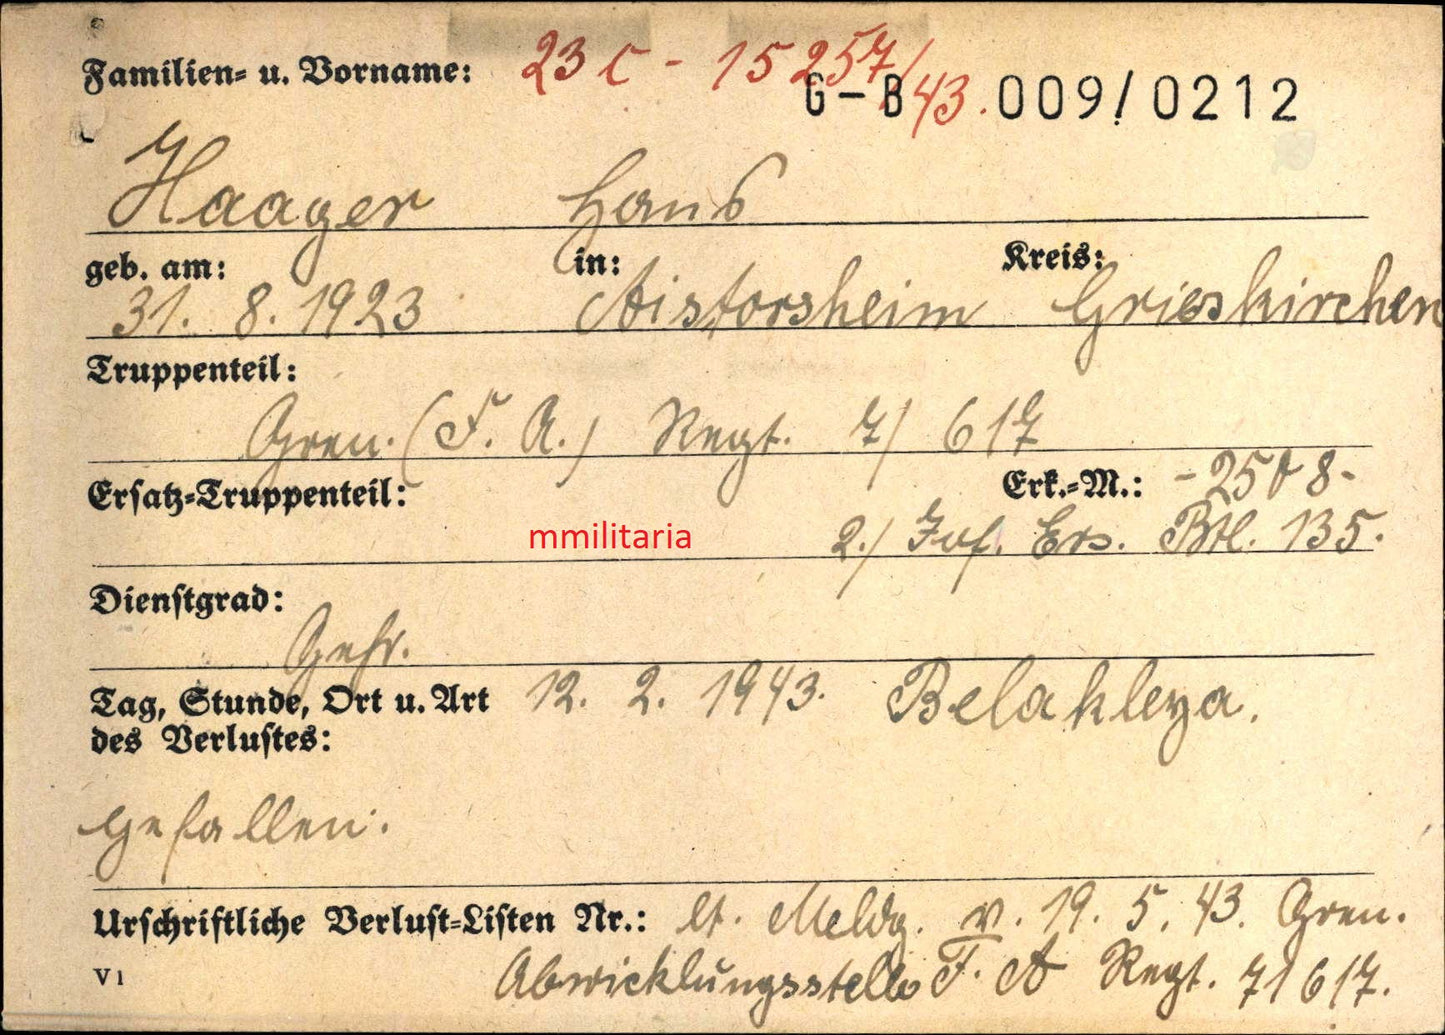 Familien= u. Vorname: 23 C - 15 257/43.
G-B 009/0212
Haager Hans
geb. am: in: Kreis:
31. 8. 1923 Aistorsheim Grieskirchen
Truppenteil:
Gren. (F. A.) Regt. 7/ 617
Ersatz=Truppenteil: Erk.=M.: -2508-
mmilitaria 2./ Inf. Ers. Btl. 135.
Dienstgrad:
Gefr.
Tag, Stunde, Ort u. Art 12. 2. 1943. Belakleya.
des Verlustes:
gefallen.
Urschriftliche Verlust=Listen Nr.: lt. Meldg. v. 19. 5. 43. Gren.
V1 Abwicklungsstelle F. A Regt. 7/ 617.